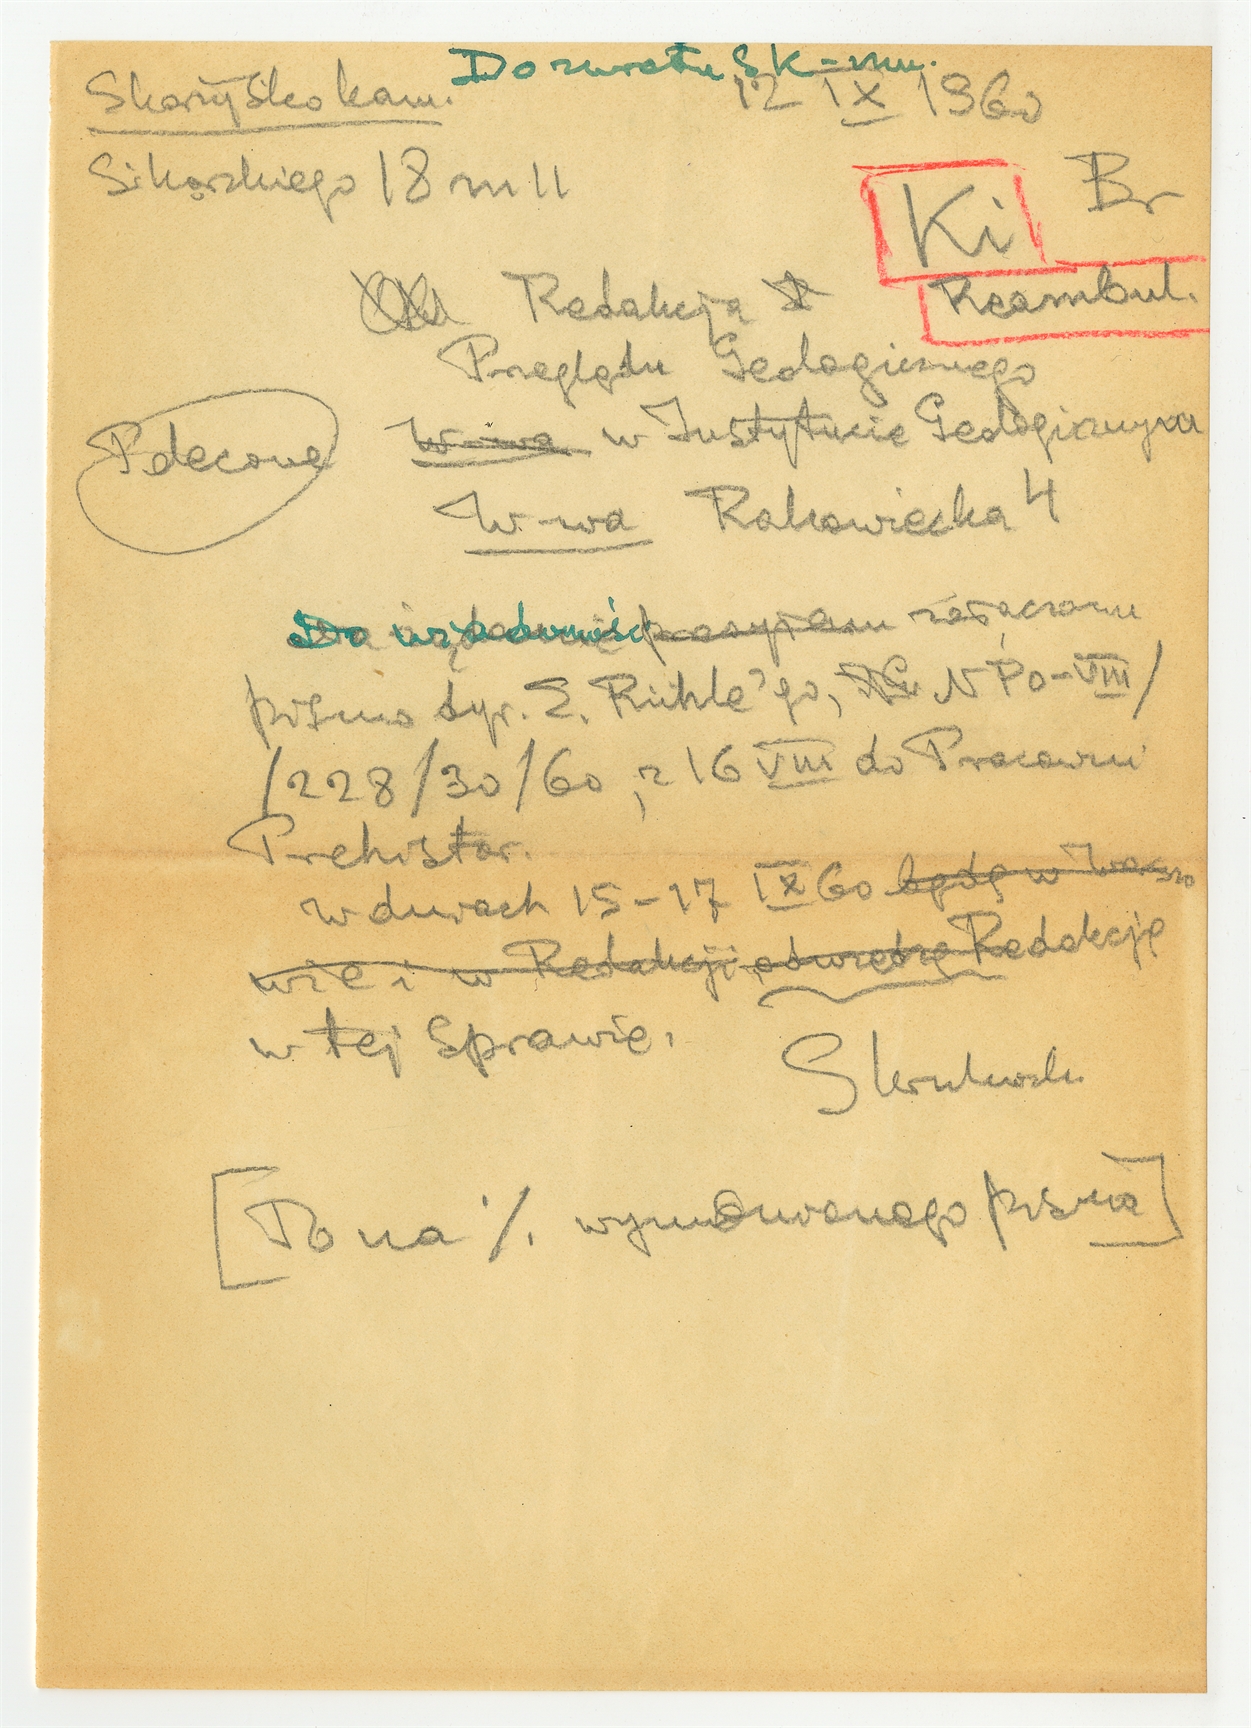 Do zwrotu Sk-mu.
Skarżysko kam. 12 IX 1960
Sikorskiego 18 m 11
Ki Br
Redakcja Reambul.
Przeglądu Geologicznego
Polecone W-wa w Instytucie Geologicznym
W-wa Rakowiecka 4
Do wiadomości przesyłam załączam
pismo dyr. E. Rühle'go, N Po-VIII/
/228/30/60, z 16 VIII do Pracowni
Prehistor.
W dniach 15-17 IX 60 będę w Warsza
wie i w Redakcji odwiedzę Redakcję
w tej sprawie.
[To na %. wymienionego pisma]